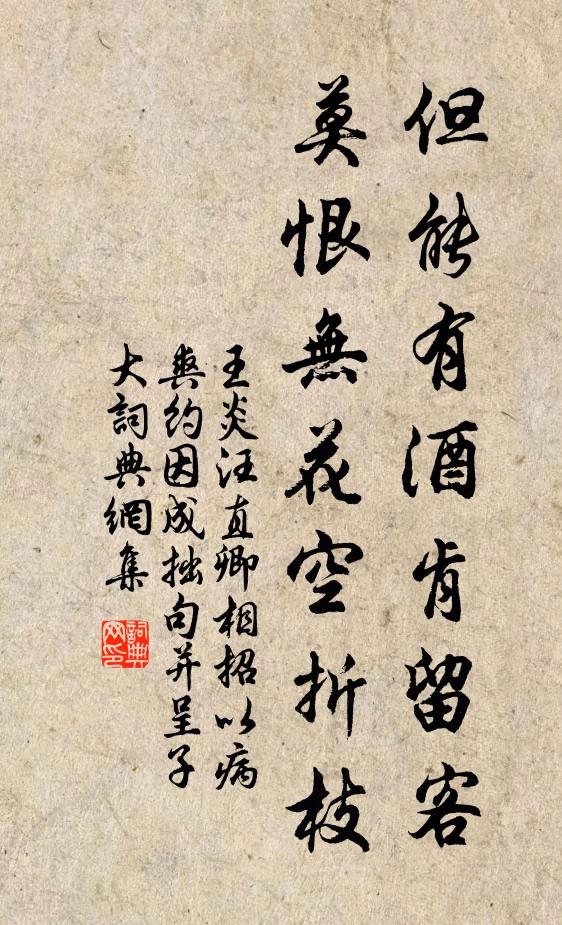 但能有酒肯留客
莫恨無花空折枝
王炎汪直卿相招以病
爽約因成拙句并呈子
大詞典網集
詞典
网印